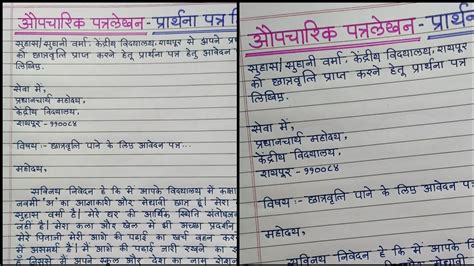 औपचारिक पत्रलेखन - प्रार्थना पत्र
सुहास/सुधनी वर्मा, केंद्रीय विद्यालय, रायपुर से अपने
को छात्रवृत्ति प्राप्त करने हेतु प्रार्थना पत्र हेतु आवेदन
लिखिए.
सेवा में,
प्रधानचार्य महोदय,
केंद्रीय विद्यालय,
रायपुर - ११००८४
विषय :- छात्रवृत्ति पाने के लिए आवेदन पत्र...
महोदय,
सविनय निवेदन है कि मैं आपके विद्यालय में कक्षा
नवमी 'अ' का आज्ञाकारी और मेधावी छात्र हूँ। मेरा
सुहास वर्मा है। मेरे घर की आर्थिक स्थिति संतोषजनक
नहीं है। मेरा कला और खेल में भी अच्छा प्रदर्शन
मेरे पिताजी मेरी आगे की पढ़ाई का खर्च वहन करने
में असमर्थ हैं। मैं आगे की पढ़ाई जारी रखने का
जिससे मैं अपने स्कूल और देश का नाम रोशन
औपचारिक पत्रलेखन - प्रार्थना
सुहास/सुधनी वर्मा, केंद्रीय विद्यालय, रायपुर
को छात्रवृत्ति प्राप्त करने हेतु प्रार्थना पत्र
लिखिए.
सेवा में,
प्रधानचार्य महोदय,
केंद्रीय विद्यालय,
रायपुर - ११००८४
विषय :- छात्रवृत्ति पाने के लिए आवेदन पत्र
महोदय,
सविनय निवेदन है कि मैं आपके